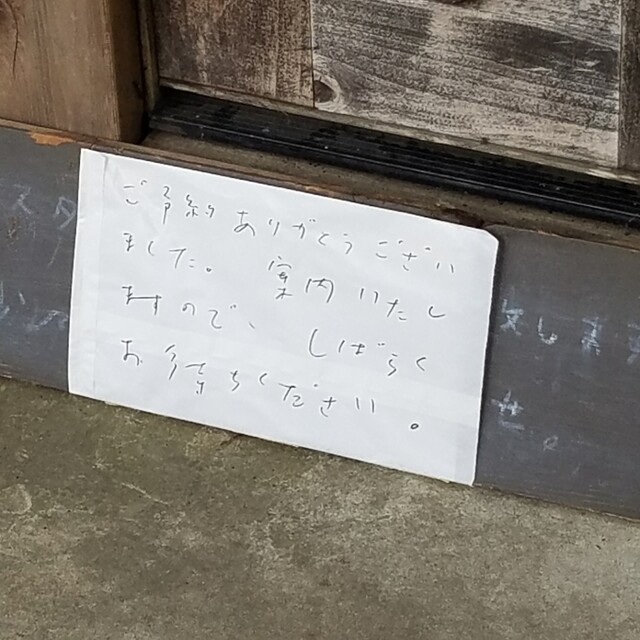 ご予約ありがとうござい
ました。 案内いたし
ますので、 しばらく
お待ちください。
スタ
致します
せ。